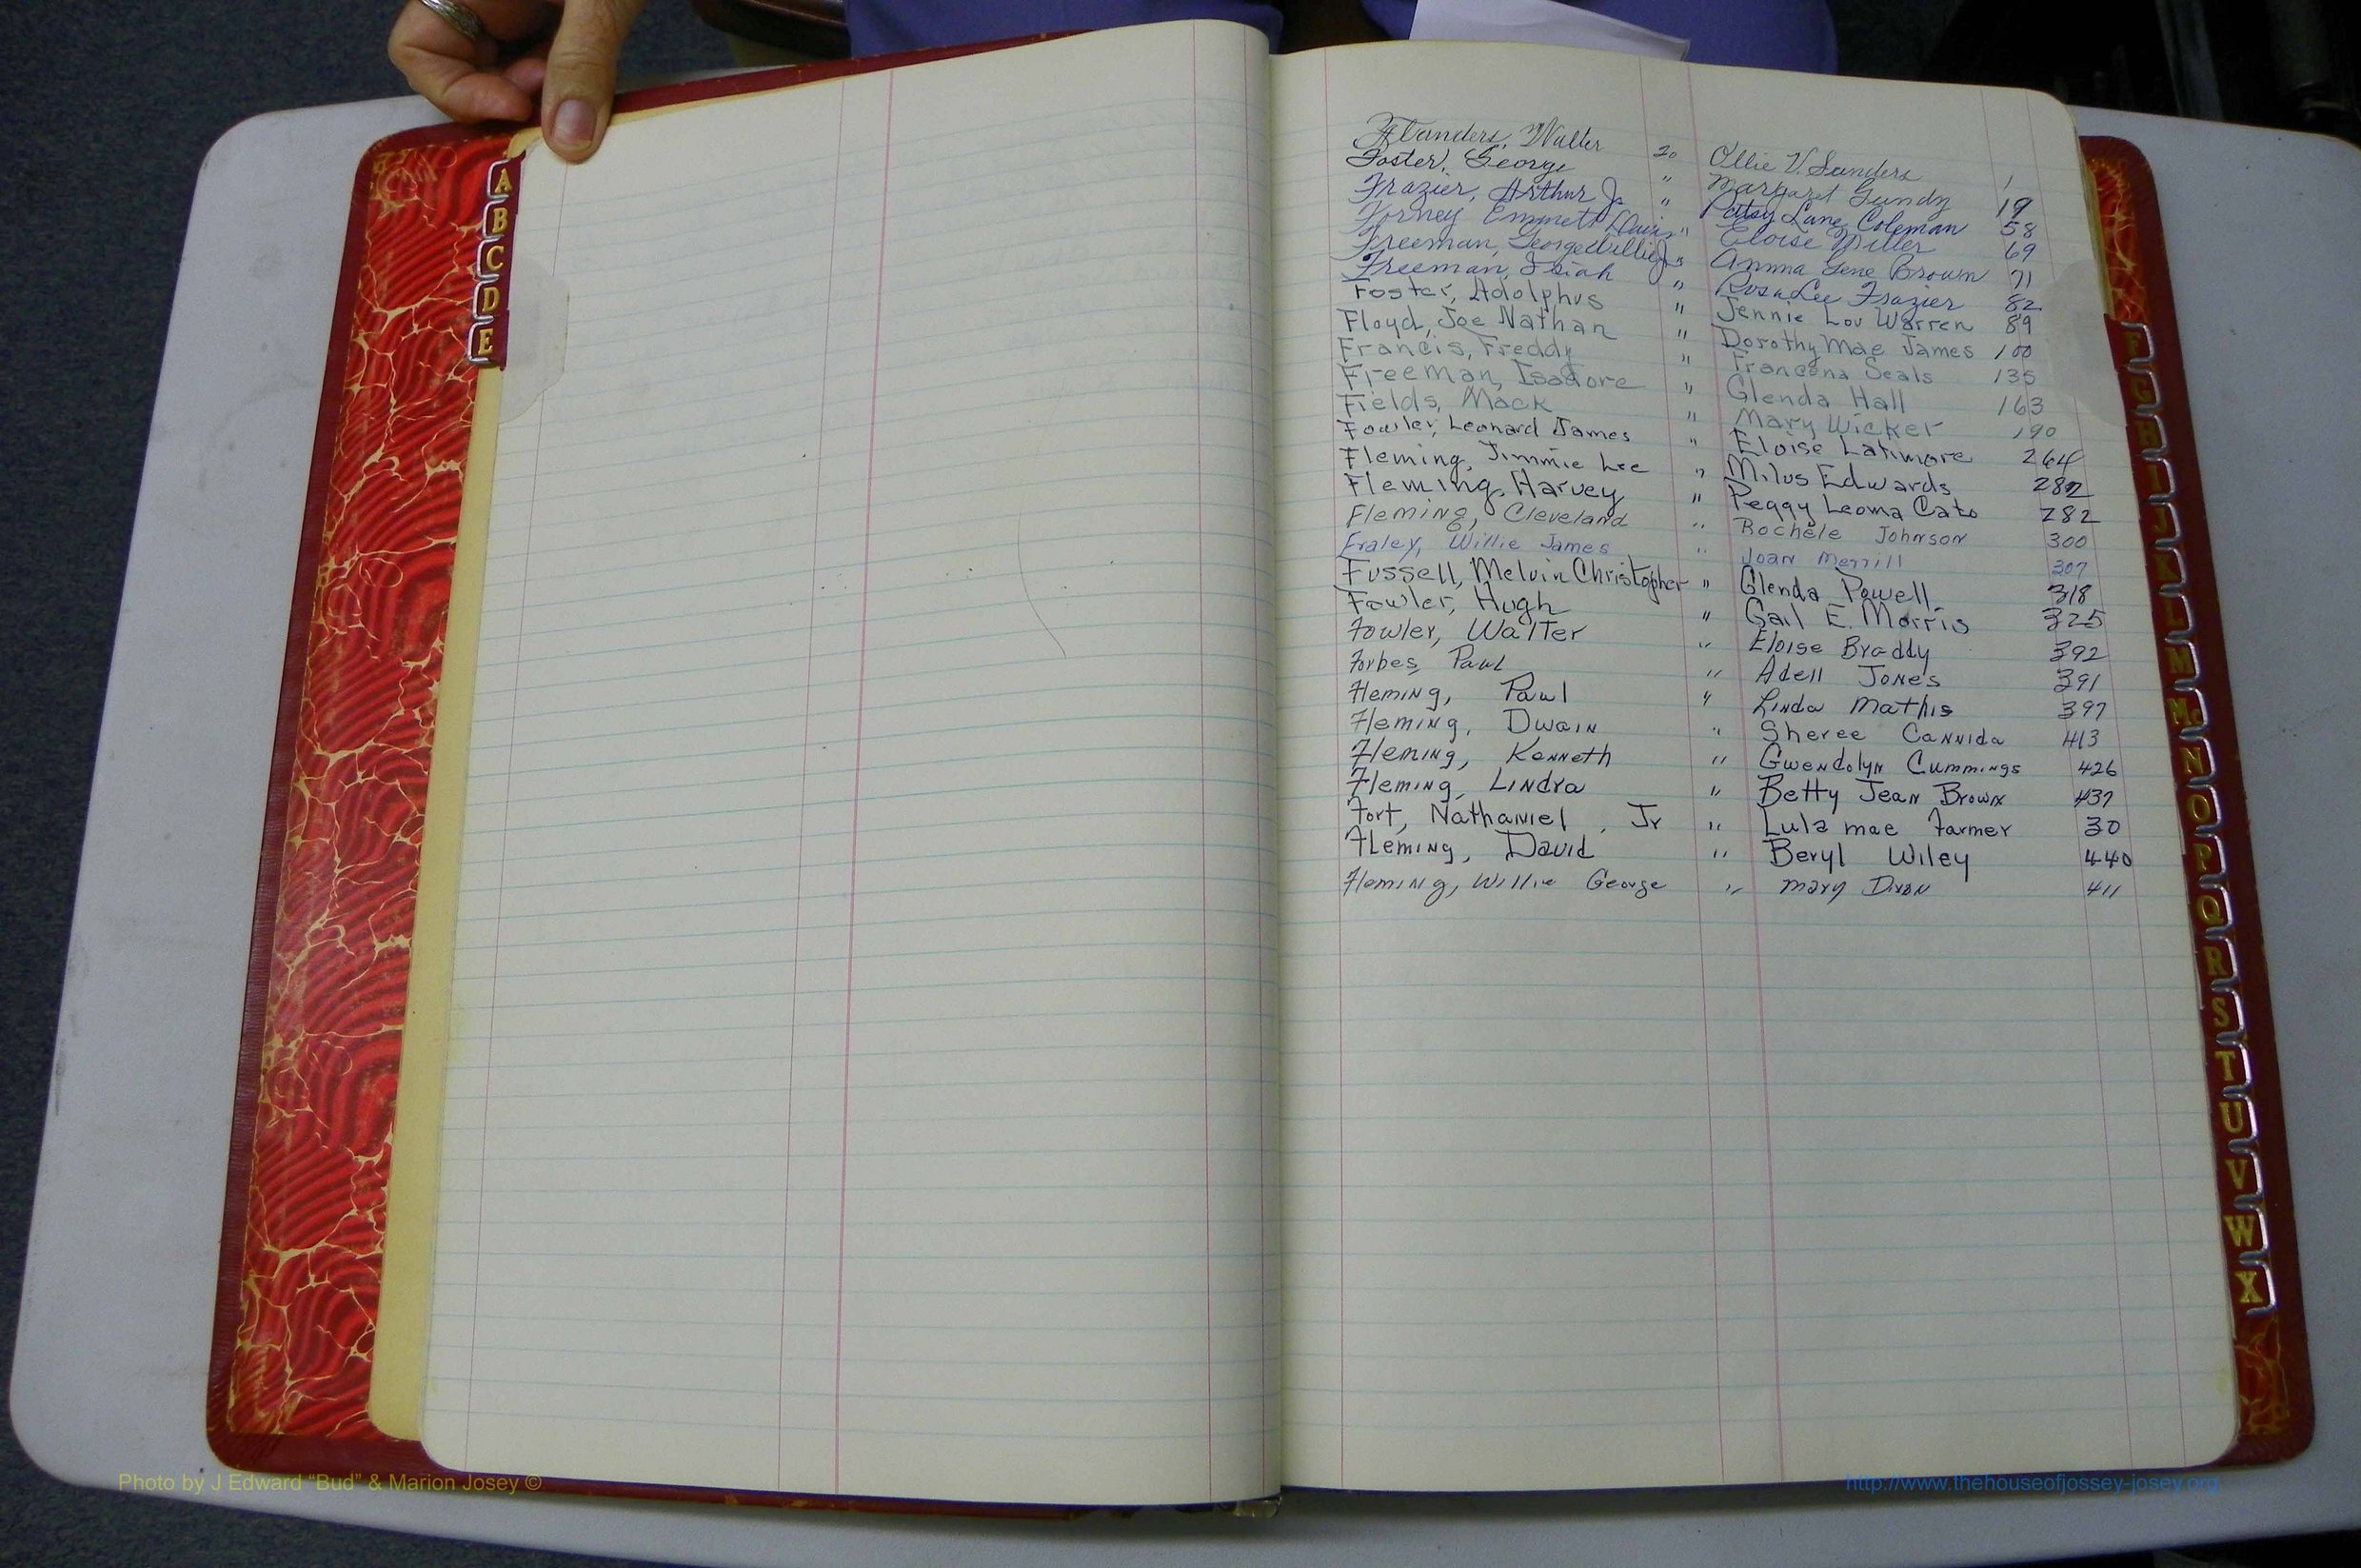 A
B
C
D
E
Flanders, Walter 20 Ollie V. Sanders 1
Foster, George " Margaret Gundy 19
Frazier, Arthur Jr " Patsy Lane Coleman 58
Forney Emmett " Eloise Miller 69
Freeman, George Willie Jr " Annna Gene Brown 71
Freeman, Isiah " Rosa Lee Frazier 82
Foster, Adolphus " Jennie Lou Warren 89
Floyd, Joe Nathan " Dorothy Mae James 100
Francis, Freddy " Francena Seals 135
Freeman, Isadore " Glenda Hall 163
Fields, Mack " Mary Wicker 190
Fowler, Leonard James " Eloise Latimore 264
Fleming, Jimmie Lee " Milus Edwards 282
Fleming, Harvey " Peggy Leoma Cato 282
Fleming, Cleveland " Rochele Johnson 300
Fraley, Willie James " Joan Merrill 307
Fussell, Melvin Christopher " Glenda Powell 318
Fowler, Hugh " Gail E. Morris 325
Fowler, Walter " Eloise Braddy 392
Forbes, Paul " Adell Jones 391
Fleming, Paul " Linda Mathis 397
Fleming, Dwain " Sheree Cannida 413
Fleming, Kenneth " Gwendolyn Cummings 426
Fleming, Lindra " Betty Jean Brown 437
Fort, Nathaniel, Jr " Lula mae Farmer 30
Fleming, David " Beryl Wiley 440
Fleming, Willie George " Mary Dixon 411
F
G
H
I
J
K
L
M
Mc
N
O
P
Q
R
S
T
U
V
W
X
Photo by J Edward “Bud” & Marion Josey ©
http://www.thehouseofjossey-josey.org